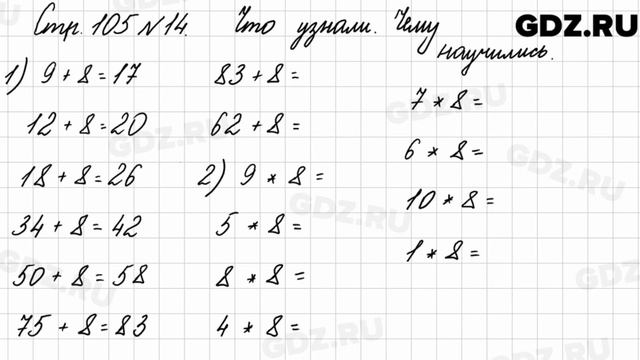 Стр. 105 №14. Что узнали. Чему научились.
GDZ.RU
1) 9 + 8 = 17
12 + 8 = 20
18 + 8 = 26
34 + 8 = 42
50 + 8 = 58
75 + 8 = 83
83 + 8 =
62 + 8 =
2) 9 * 8 =
5 * 8 =
8 * 8 =
4 * 8 =
7 * 8 =
6 * 8 =
10 * 8 =
1 * 8 =
GDZ.RU
GDZ.RU
GDZ.RU
GDZ.RU
GDZ.RU
GDZ.RU
GDZ.RU